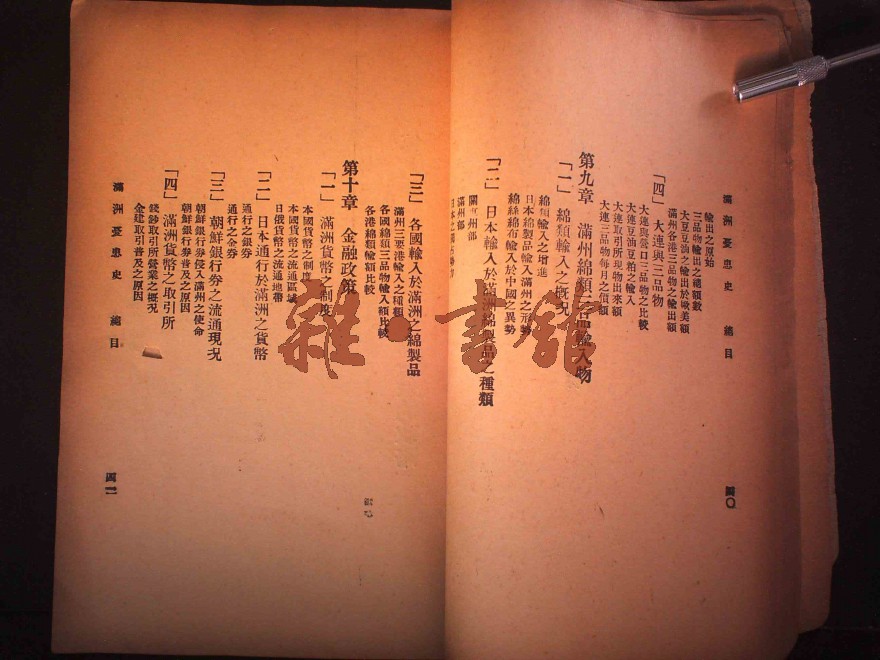 滿洲憂患史　總目
輸出之原始
三品物輸出之總額數
大豆豆油之輸出於歐美額
滿州各港三品物之輸出額
「四」大連與三品物
大連與營口三品物之比較
大連豆油豆粕之輸入
大連取引所現物出來額
大連三品物每月之價額
第九章　滿州綿類三品輸入物
「一」綿類輸入之概況
綿類輸入之增進
日本綿製品輸入滿州之形勢
綿絲綿布輸入於中國之異勢
「二」日本輸入於滿洲綿製品之種類
關東州部
滿州部
四〇
「三」各國輸入於滿洲之綿製品
滿州三要港輸入之種類
各國綿類三品物輸入額比較
各港綿類輸額比較
第十章　金融政策
「一」滿洲貨幣之制度
本國貨幣之制度
本國貨幣之流通區域
日俄貨幣之流通地帶
「二」日本通行於滿洲之貨幣
通行之銀券
通行之金券
「三」朝鮮銀行券之流通現況
朝鮮銀行券侵入滿州之使命
朝鮮銀行券普及之原因
「四」滿洲貨幣之取引所
錢鈔取引所營業之概況
金建取引普及之原因
滿洲憂患史　總目
四一
雜·書館